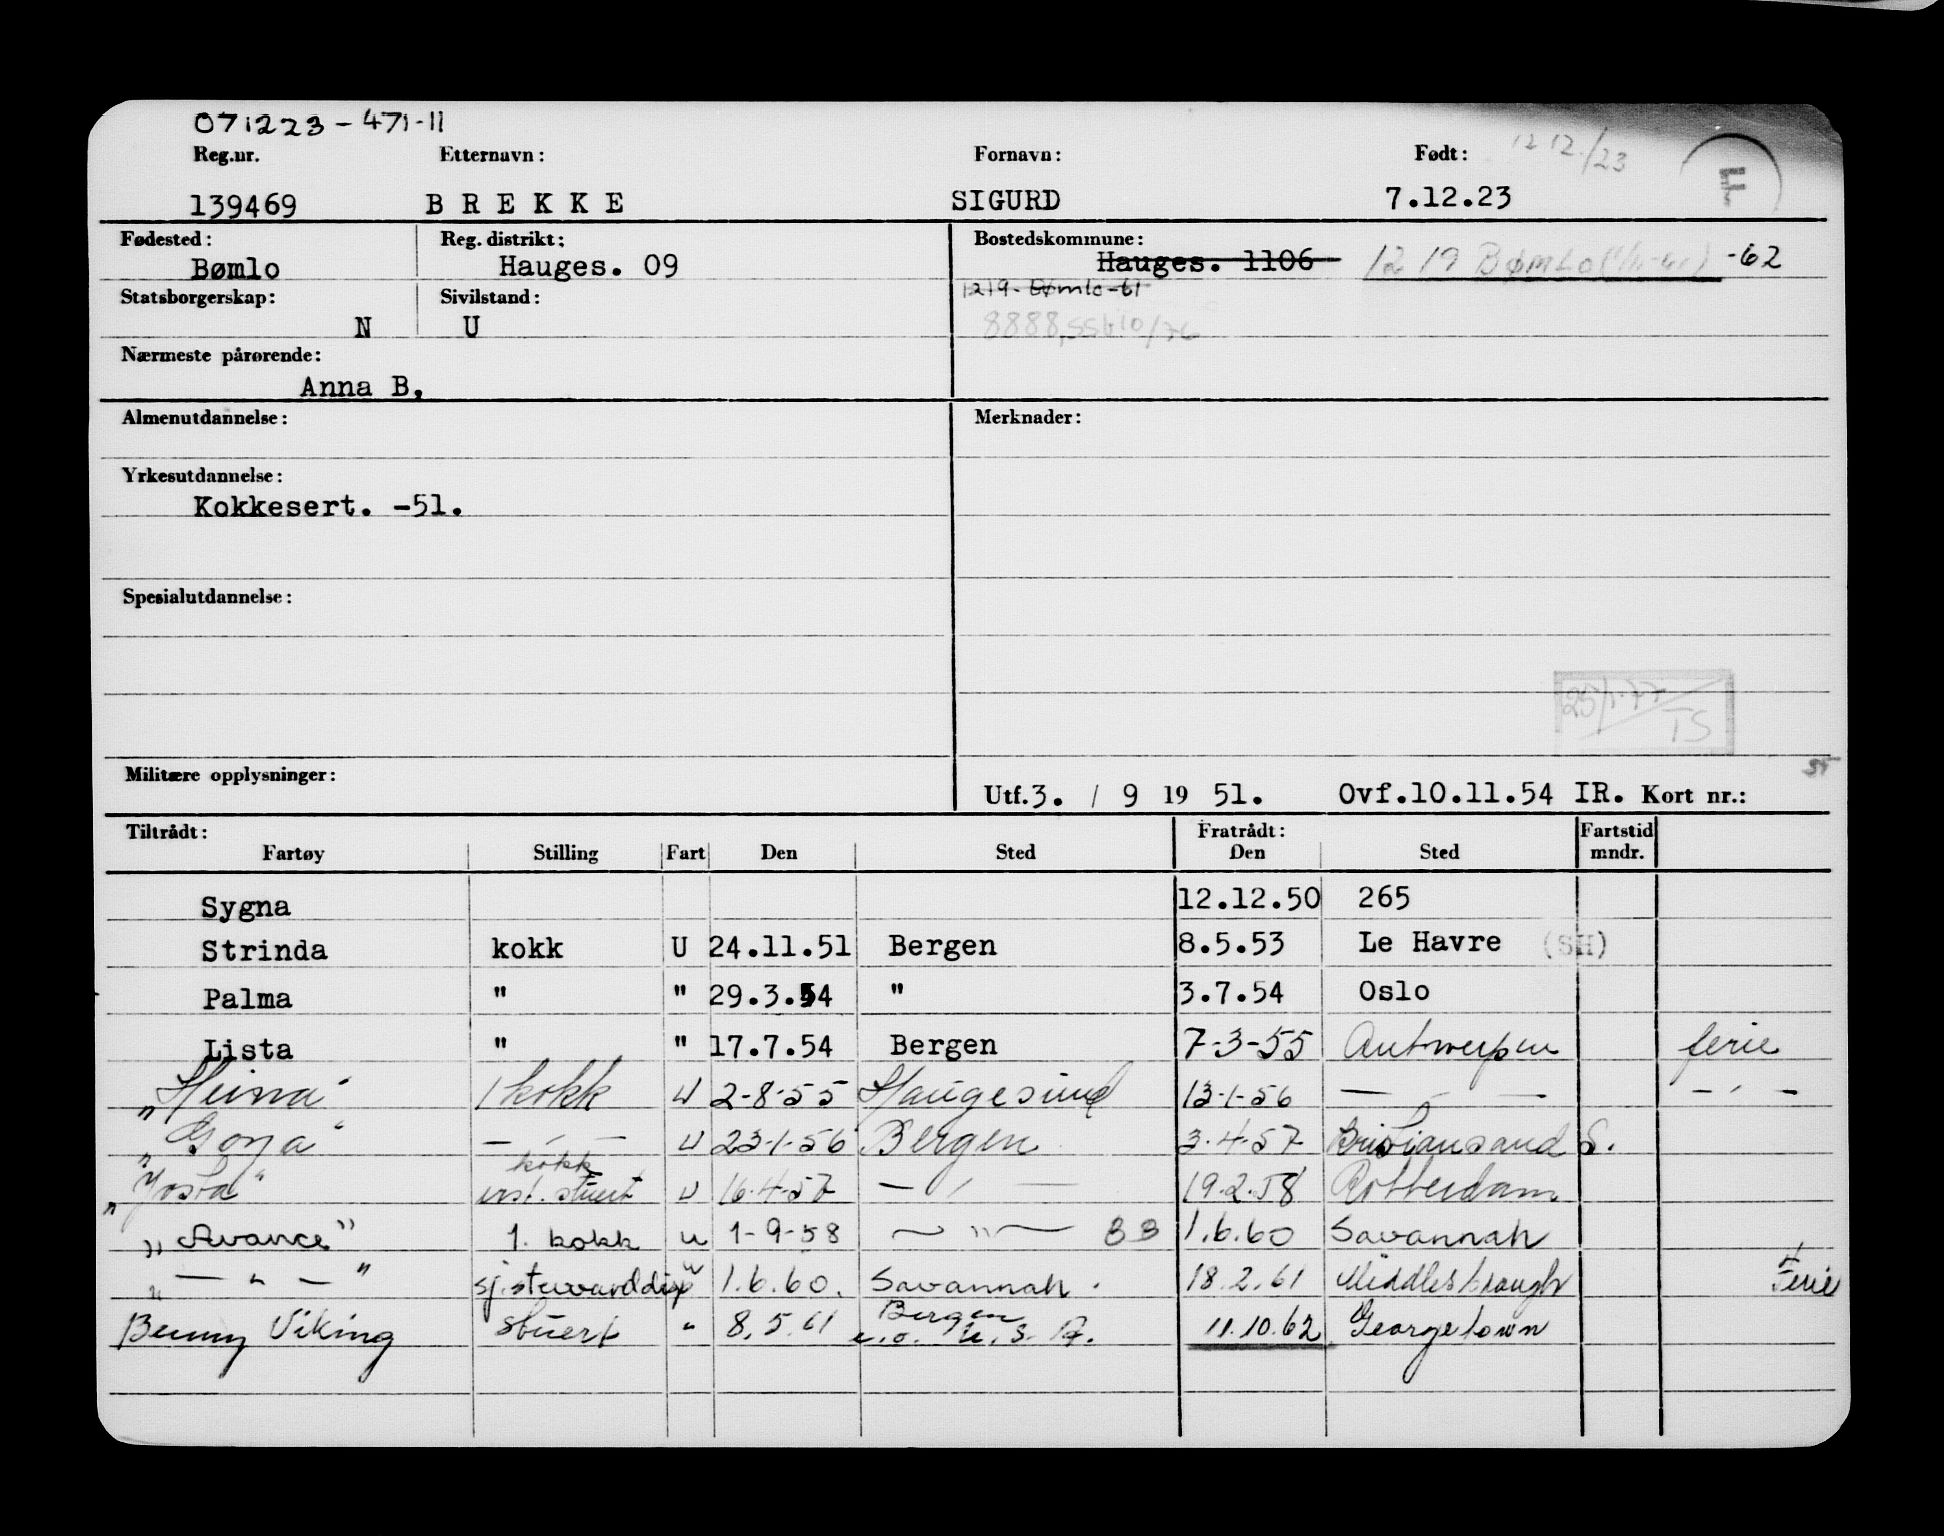 071223-471-11
Reg.nr. Etternavn: Fornavn: Født: 12 12/23 F
139469 BREKKE SIGURD 7.12.23
Fødested: Reg. distrikt: Bostedskommune:
Bømlo Hauges. 09 Hauges. 1106 1219 Bømlo -62
Statsborgerskap: Sivilstand: 1219- Bømlo-61
N U 8888, 10/76
Nærmeste pårørende:
Anna B,
Almenutdannelse: Merknader:
Yrkesutdannelse:
Kokkesert. -51.
Spesialutdannelse:
25/1-77 TS
Militære opplysninger:
Utf. 3. / 9 19 51. Ovf.10.11.54 IR. Kort nr.:
Tiltrådt: Fratrådt: Fartstid
Fartøy Stilling Fart Den Sted Den Sted mndr.
Sygna 12.12.50 265
Strinda kokk U 24.11.51 Bergen 8.5.53 Le Havre (SH)
Palma " " 29.3.54 " 3.7.54 Oslo
Lista " " 17.7.54 Bergen 7-3-55 Antwerpen ferie
"Heina" 1 kokk U 2-8-55 Haugesund 13-1-56 — - — — ' —
"Goya" — ' — U 23-1-56 Bergen 3-4-57 Kristiansand S.
kokk
" " inst. stuert U 16-4-57 — ' — 19.2.58 Rotterdam
"Avance" 1. kokk u 1-9-58 — " — BB 1.6.60 Savannah
" — " — " sj.stewarddisp " 1.6.60. Savannah. 18.2.61 Middlesbrough Ferie
Benny Viking Stuert " 8.5.61 Bergen 11.10.62 Georgetown
e.o. U.S.A.